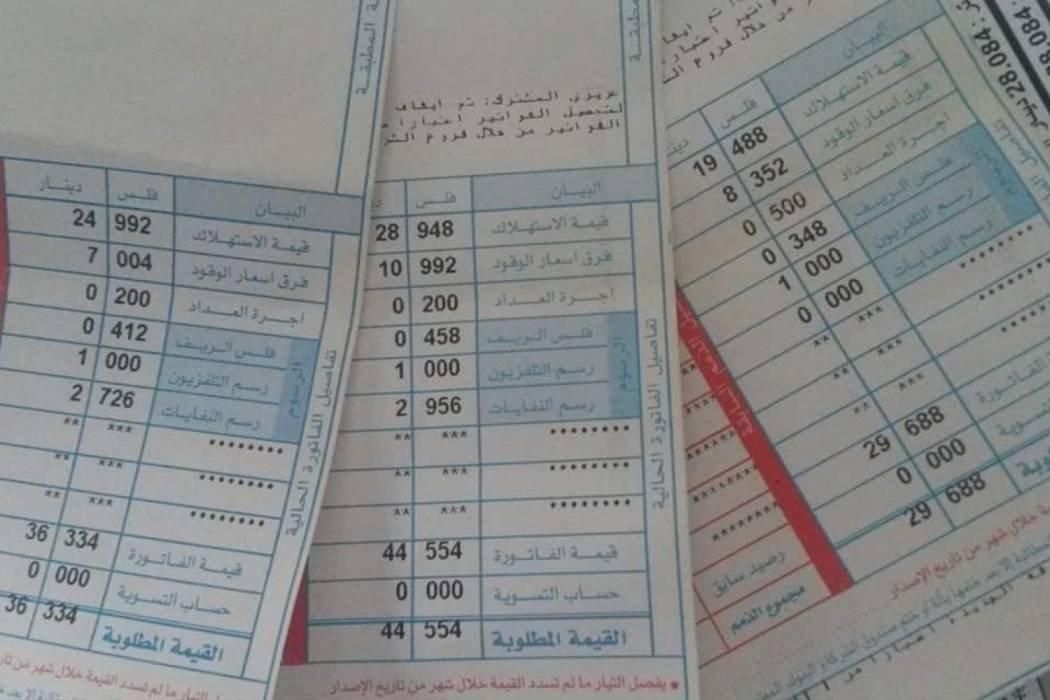 المطبقة
دينار فلس البيان
24 992 قيمة الاستهلاك
7 004 فرق اسعار الوقود
0 200 اجرة العداد
0 412 فلس الريف
1 000 رسم التلفزيون
2 726 رسم النفايات
** *** ********
** *** ********
** *** ********
36 334 قيمة الفاتورة
0 000 حساب التسوية
36 334 القيمة المطلوبة
الرسوم
تفاصيل الفاتورة الحالية
يفصل التيار ما لم تسدد القيمة خلال شهر من
المطبقة
عزيزي المشترك: تم ايقاف
لتحصيل الفواتير اعتبارا
الفواتير من خلال فروع
فلس البيان
28 948 قيمة الاستهلاك
10 992 فرق اسعار الوقود
0 200 اجرة العداد
0 458 فلس الريف
1 000 رسم التلفزيون
2 956 رسم النفايات
** *** ********
** *** ********
** *** ********
44 554 قيمة الفاتورة
0 000 حساب التسوية
44 554 القيمة المطلوبة
الرسوم
تفاصيل الفاتورة الحالية
• يفصل التيار ما لم تسدد القيمة خلال شهر من تاريخ الإصدار
تم ايقاف
اعتبارا
من خلال فروع
28.084
فلس البيان
19 488 قيمة الاستهلاك
8 352 فرق اسعار الوقود
0 500 اجرة العداد
0 348 فلس الريف
1 000 رسم التلفزيون
0 000 رسم النفايات
** *** ********
** *** ********
** ***
29 688 الفاتورة
0 000
29 688
رصيد سابق
مجموع الذمم
خلال شهر من تاريخ الإصدار